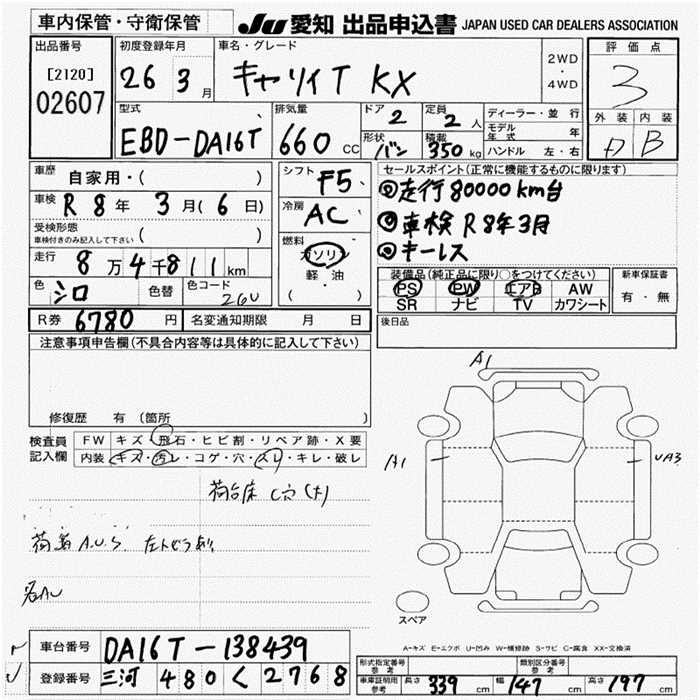 車内保管・守衛保管
JU 愛知 出品申込書 JAPAN USED CAR DEALERS ASSOCIATION
出品番号
[2120]
02607
初度登録年月
26 3月
車名・グレード
キャリイT KX
2WD
・
4WD
評価点
3
外装 内装
B
型式
EBD-DA16T
排気量
660 cc
ドア 2
定員 2人
形状 バン
積載 350kg
ディーラー・並行
モデル年式 年
ハンドル 左・右
車歴 自家用・( )
車検 R8年 3月(6日)
受検形態
車検付きのみ記入して下さい ( )
走行 8万4千811km
色 シロ 色替 色コード 26U
シフト F5
冷房 AC
燃料
ガソリン
軽油
( ・ )
セールスポイント(正常に機能するものに限ります)
◎走行80000km台
◎車検R8年3月
◎キーレス
装備品(純正品に限り○をつけてください)
PS PW エアB AW
SR ナビ TV カワシート
新車保証書
有・無
R券 6780円 名変通知期限 月 日
後日品
注意事項申告欄(不具合内容等は具体的に記入して下さい)
修復歴 有(箇所 )
検査員
記入欄
FW キズ・飛石・ヒビ割・リペア跡・X要
内装 キズ・汚レ・コゲ・穴・スレ・キレ・破レ
荷台床 C穴(大)
A.U.S.
A1
A1
UA3
スペア
A-キズ E-エクボ U-凹み W-補修跡 S-サビ C-腐食 XX-交換済
車台番号 DA16T-138439
登録番号 三河 480 く 2768
形式指定番号
参考
類別区分番号
参考
車庫証明用
参考
長さ 339cm 幅 147cm 高さ 197cm